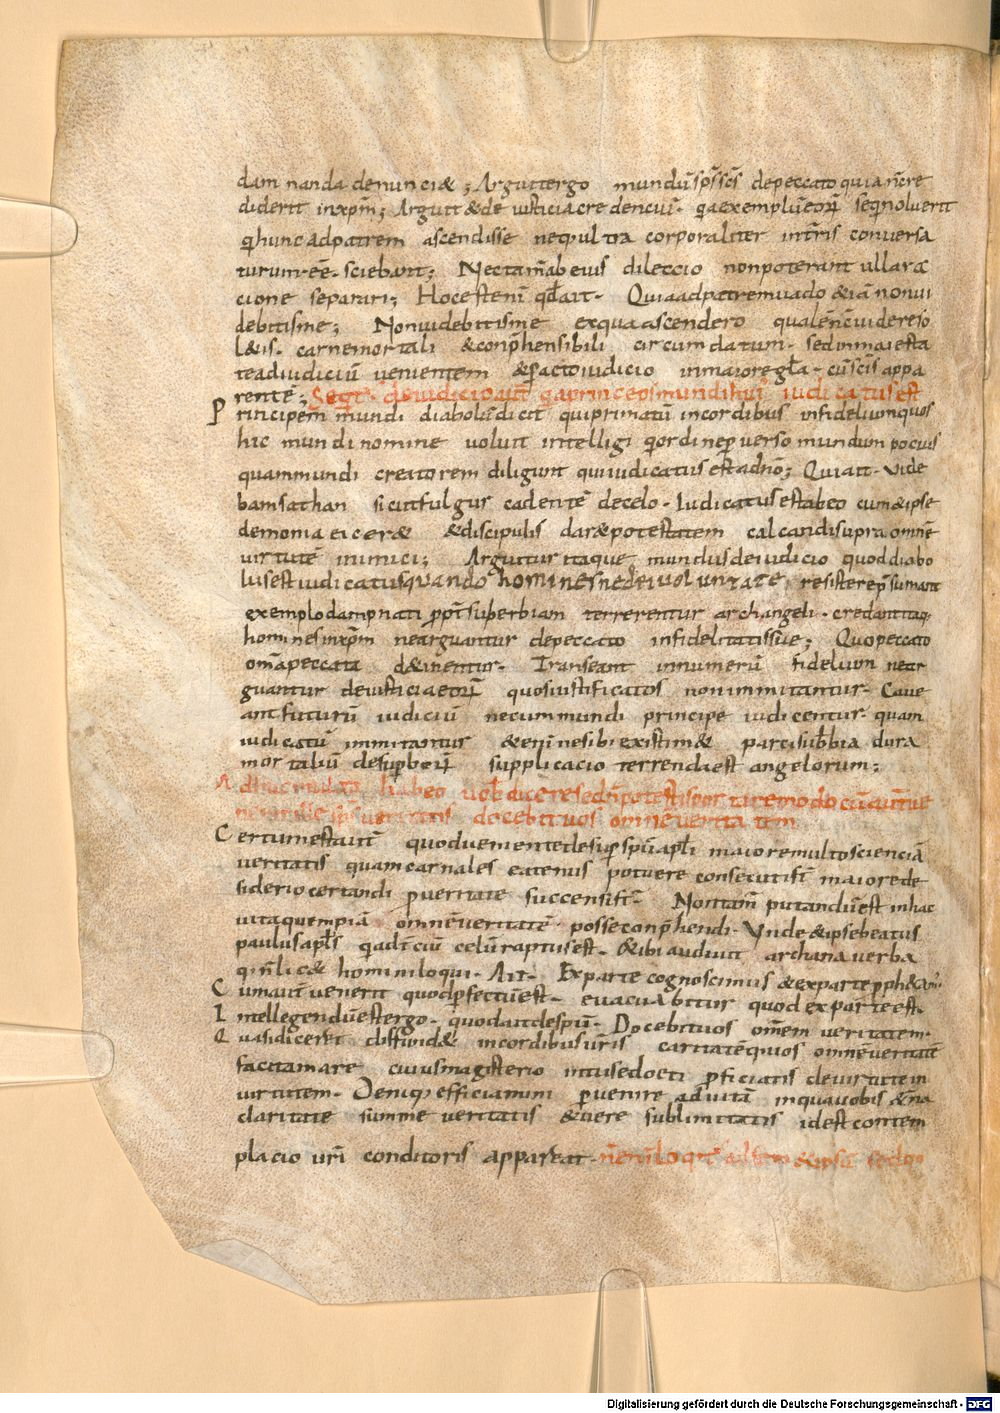 dam nanda denunci&; Arguitergo mundū sp̄s sc̄s depeccato quia n̄cre
diderit inxpm̄; Arguit &de iusticia credenciū. q̄a exemplū eorū seqi noluerit
q̄ hunc adpatrem ascendisse neq; ultra corporaliter interris conversa
turum eē. sciebant; Nec tam̄ ab eius dileccio non poterant ulla ra
cione separari; Hoc est eni qd̄ ait. Quia adpatrem uado &iā non ui
debitisme; Non uidebitisme ex qua ascendero qualēn̄c uidere so
l&is. carne mortali &conp̄hensibili circumdatum. sed in maiesta
te ad iudiciū venientem &peracto iudicio in maiore gl̄a. cū sc̄is appa
rentē; Seqt̄. de iudicio aut̄ q̄a princeps mundi hui' iudicatus est
Principem mundi diabolū dicit qui primatū in cordibus infideliumquos
hic mundi nomine uoluit intelligi q̄ ordine peruerso mundum pocius
quam mundi creatorem diligunt qui iudicatus est ad n̄o; Qui ait. Vide
bam sathan sicut fulgur cadentē de celo. Iudicatus est ab eo cum &ipse
demonia eicer& &discipulis dar&potestatem calcandi supra omnē
uirtutē inimici; Arguitur itaque mundus de iudicio quod diabo
lus est iudicatus quando homines nedei uoluntate resistere p̄sumant
exemplo dampnati ppt̄ superbiam terrerentur archangeli. credant itaq;
homines inxpm̄ ne arguantur de peccato infidelitatis suae; Quo peccato
om̄a peccata d&inentur. Transeant in numerū fidelium ne ar
guantur de iusticia eorū quos iustificatos non immitantur. Cave
ant futurū iudiciū ne cum mundi principe iudicentur. quam
iudicatū immitantur &enī ne sibi existim& parci sup̄bia dura
mortaliū de sup̄borū supplicacio terrenda est angelorum;
Adhuc multa habeo uob̄ dicere sed n̄ potestis portare modo cū aut̄ ue
nerit ille sp̄s veritatis docebit uos omnē veritatem
Certum est aut̄ quod veniente desup sp̄u ap̄li maiorem multo scienciā
veritatis quam carnales eatenus potuere consecuti sī maiore de
siderio certandi pveritate succensi sī. Non tam̄ putandū est in hac
uita quempiā omnē veritatē posse conp̄hendi. Vnde &ipse beatus
paulus ap̄ls q̄ ad iiī ciū celū raptus est. &ibi audiuit archana verba
q̄ n̄ lic& homini loqui. Ait. Ex parte cognoscimus &exparte pph&am'
Cum aut̄ venerit quod pfectū est. evacuabitur quod ex parte est.
Intellegendū est ergo. quod ait de sp̄u. Docebit uos om̄em veritatem.
Quasi diceret diffund& in cordibus ur̄is caritatē quos omnē veritatē
facit amare cuius magisterio intus edocti pficiatis de virtute in
virtutem. Deniq; efficiamini puenire ad uitā in qua uobis &n̄a
claritate summe veritatis &vere sublimitatis id est contem
placio ur̄i conditoris appareat. n̄ enī loqit'